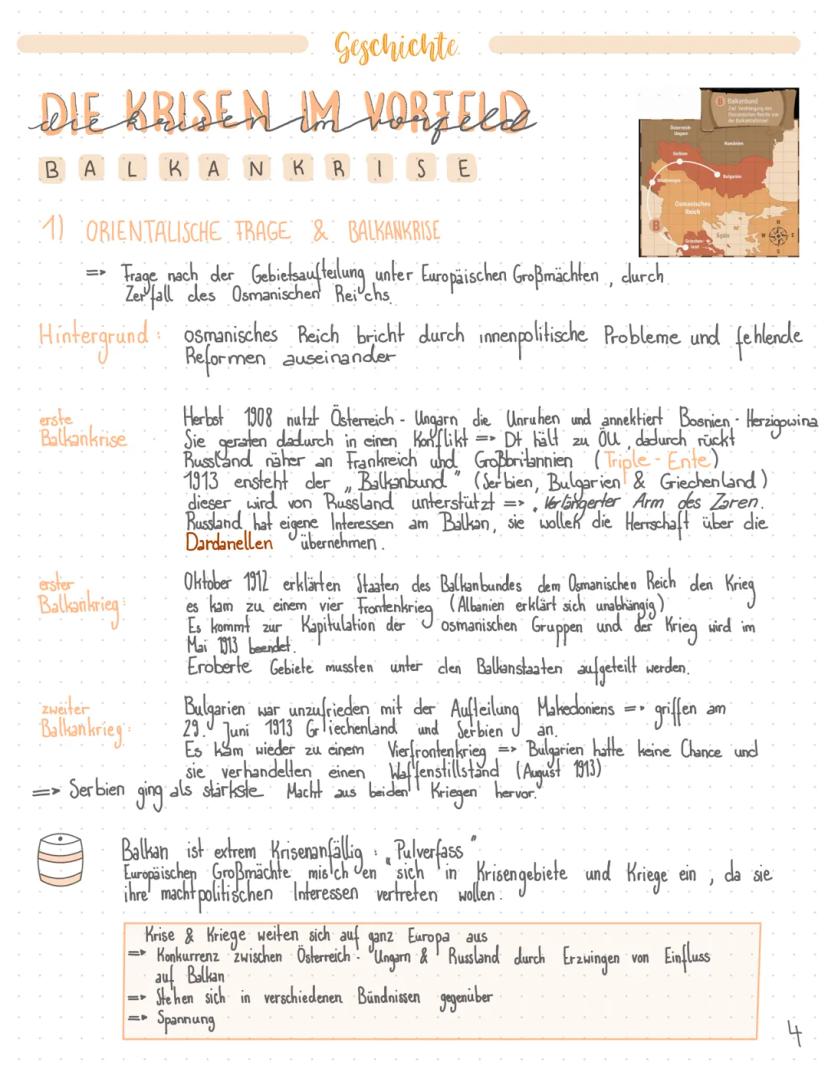 Geschichte
DIE KRISEN IM VORFELD
die krisen im vorfeld
BALKANKRISE
B Balkanbund
Ziel: Verdrängung des
Osmanischen Reichs von
der Balkanhalbinsel
Österreich-
Ungarn
Rumänien
Serbien
Bulgarien
Montenegro
Osmanisches
Reich
B
Ägäis
Griechen-
land
N
W
S
1) ORIENTALISCHE FRAGE & BALKANKRISE
=> Frage nach der Gebietsaufteilung unter Europäischen Großmächten, durch
Zerfall des Osmanischen Reichs
Hintergrund: osmanisches Reich bricht durch innenpolitische Probleme und fehlende
Reformen auseinander
erste
Balkankrise
Herbst 1908 nutzt Österreich-Ungarn die Unruhen und annektiert Bosnien-Herzigowina
Sie geraten dadurch in einen Konflikt => Dt hält zu ÖU, dadurch rückt
Russland näher an Frankreich und Großbritannien (Triple-Ente)
1913 ensteht der „Balkanbund" (Serbien, Bulgarien & Griechenland)
dieser wird von Russland unterstützt => „Verlängerter Arm des Zaren.
Russland hat eigene Interessen am Balkan, sie wollen die Herrschaft über die
Dardanellen übernehmen.
erster
Balkankrieg:
Oktober 1912 erklärten Staaten des Balkanbundes dem Osmanischen Reich den Krieg
es kam zu einem vier Frontenkrieg (Albanien erklärt sich unabhängig)
Es kommt zur Kapitulation der osmanischen Gruppen und der Krieg wird im
Mai 1913 beendet.
Eroberte Gebiete mussten unter den Balkanstaaten aufgeteilt werden.
zweiter
Balkankrieg:
Bulgarien war unzufrieden mit der Aufteilung Makedoniens => griffen am
29. Juni 1913 Griechenland und Serbien an.
Es kam wieder zu einem Vierfrontenkrieg => Bulgarien hatte keine Chance und
sie verhandelten einen Waffenstillstand (August 1913)
=> Serbien ging als stärkste Macht aus beiden Kriegen hervor.
Balkan ist extrem Krisenanfällig: „Pulverfass"
Europäischen Großmächte mischen sich in Krisengebiete und Kriege ein, da sie
ihre machtpolitischen Interessen vertreten wollen.
Krise & Kriege weiten sich auf ganz Europa aus
=> Konkurrenz zwischen Österreich-Ungarn & Russland durch Erzwingen von Einfluss
auf Balkan
=> Stehen sich in verschiedenen Bündnissen gegenüber
=> Spannung
4